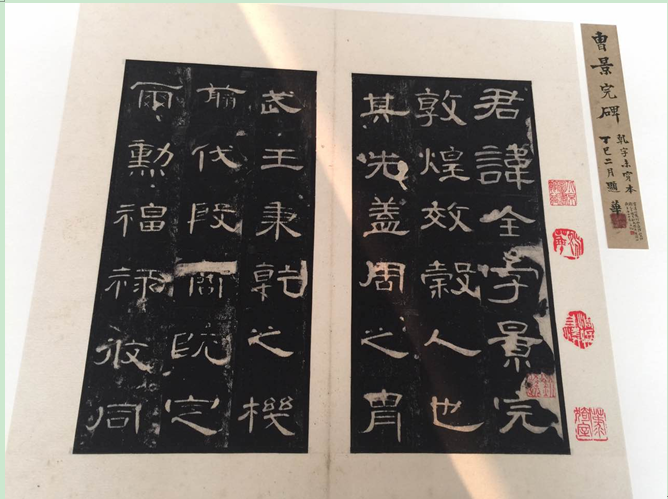 曹景完碑
乾字未穿本
丁巳二月題
君諱全字景完
敦煌效穀人也
其先蓋周之胄
武王秉乾之機
翦伐殷商既定
爾勳福祿攸同